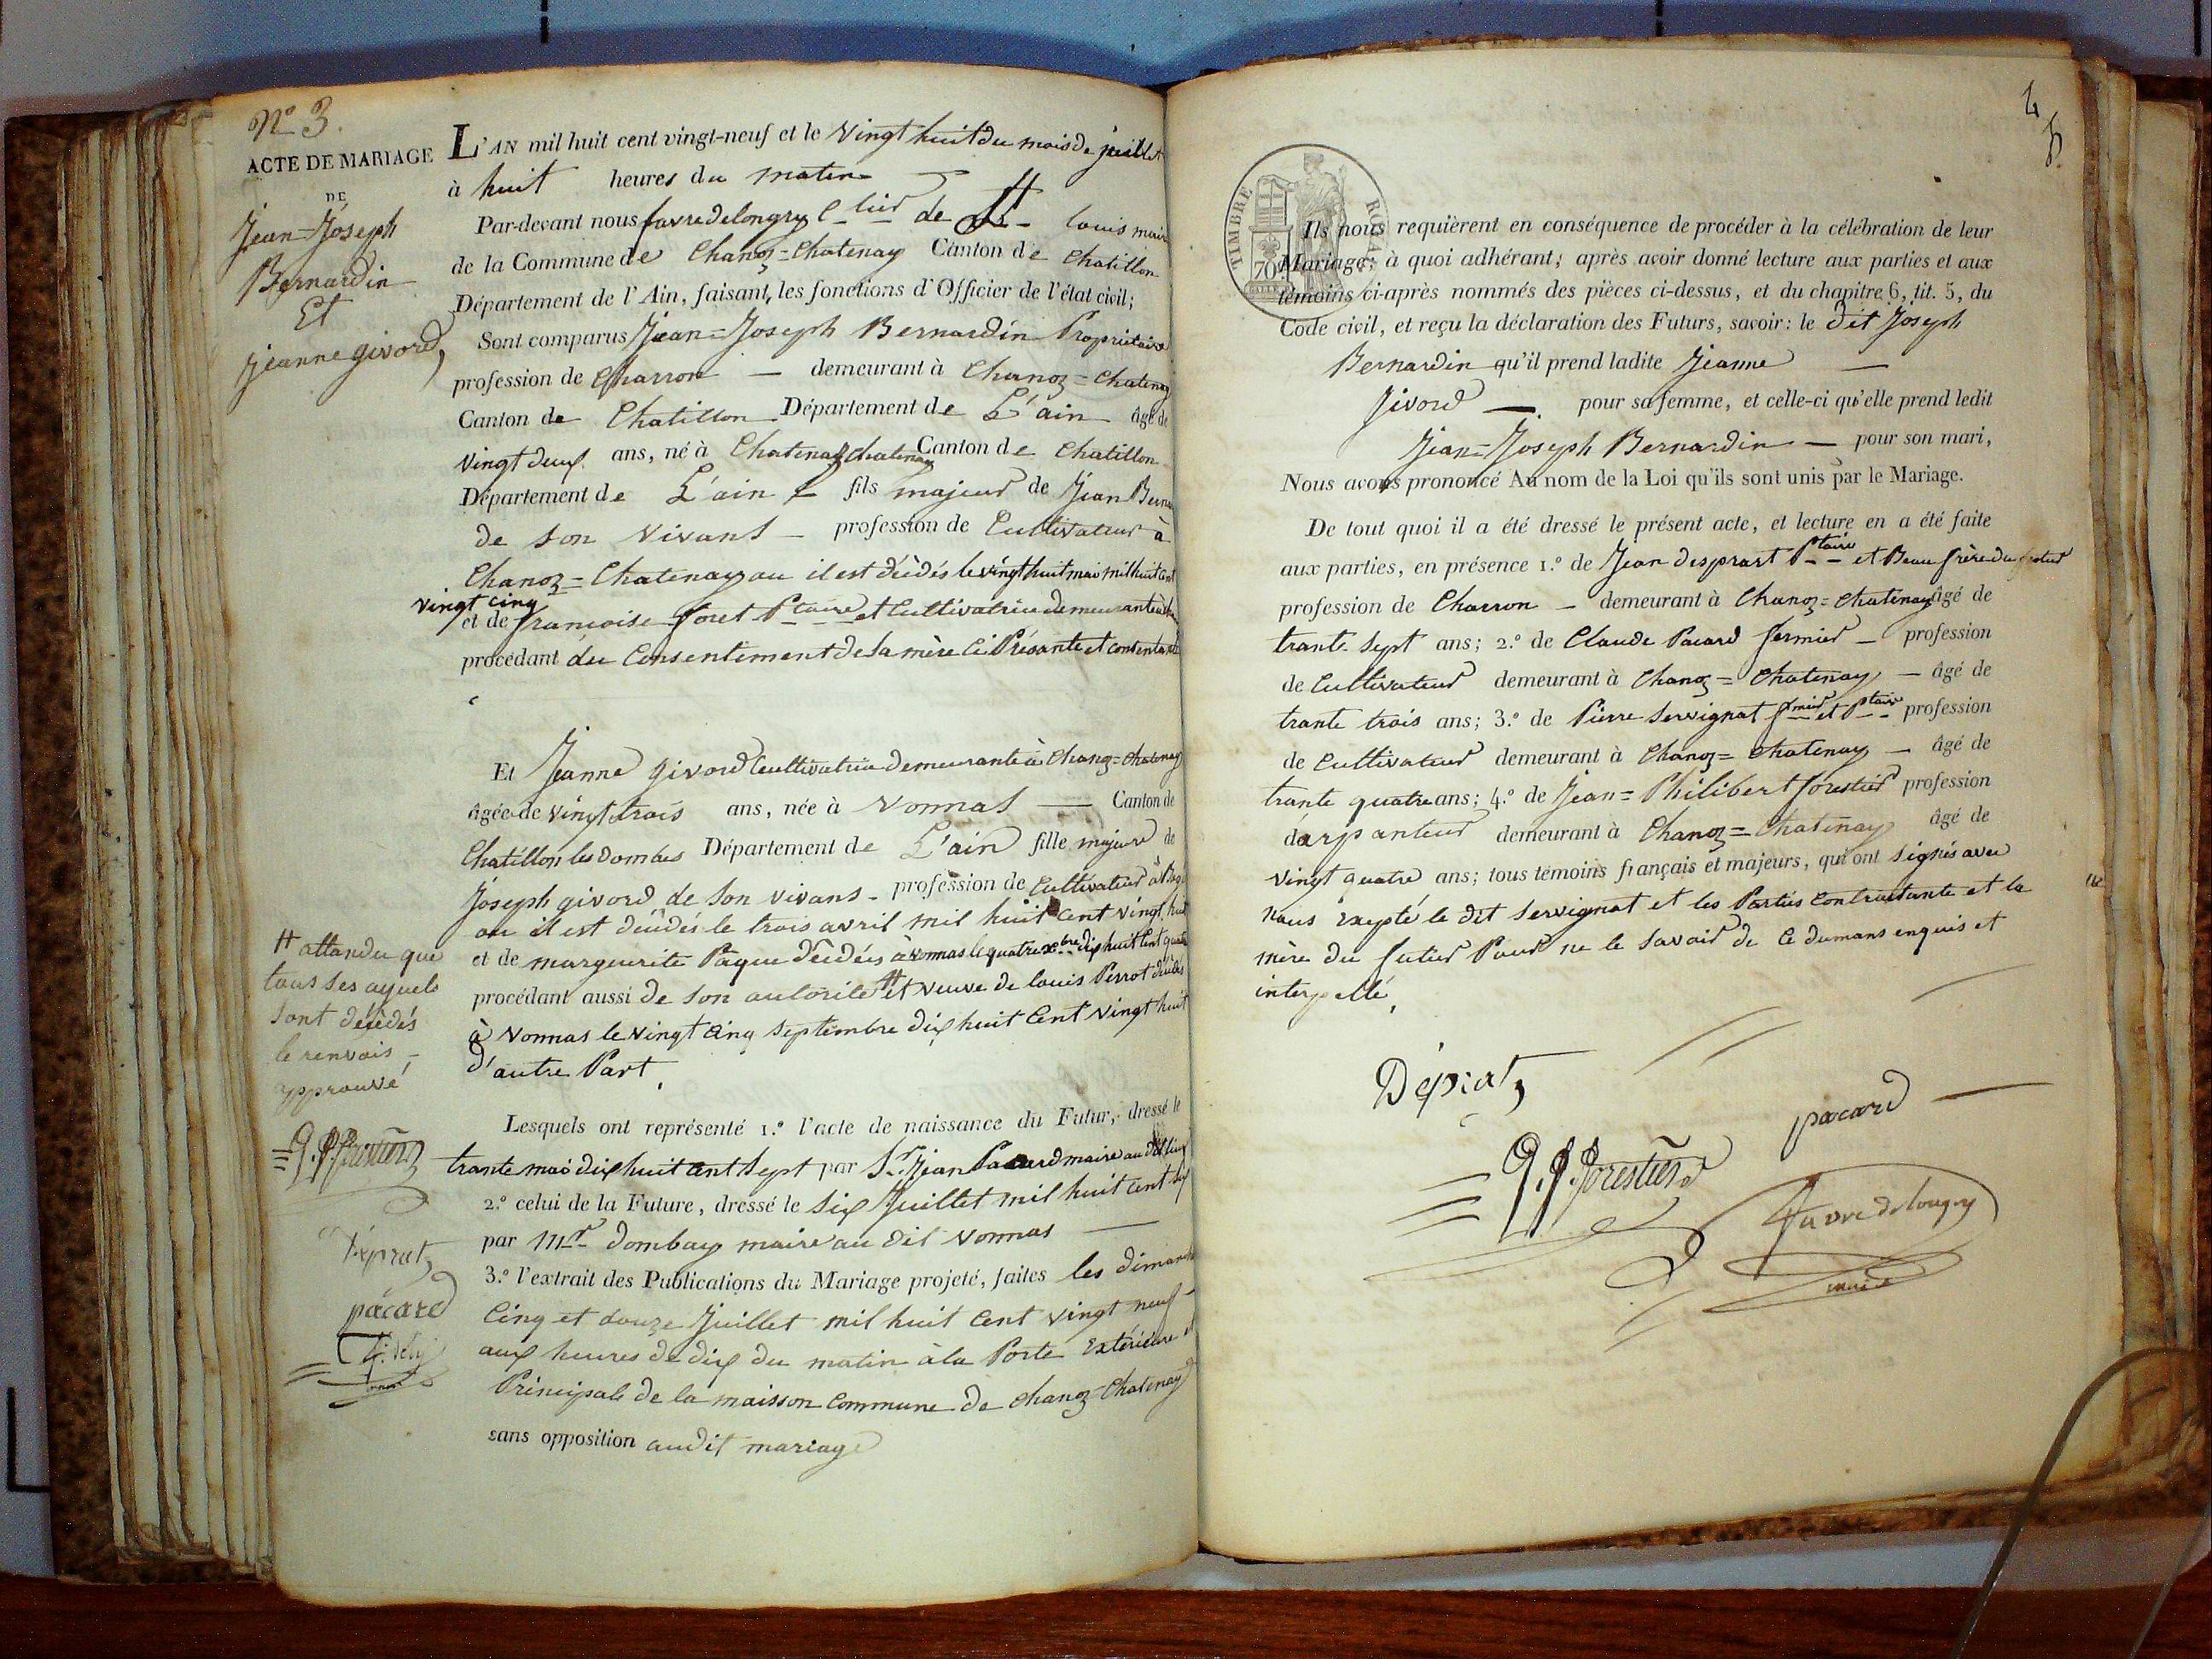 N.o 3.
ACTE DE MARIAGE
DE
Jean=Joseph
Bernardin
Et
Jeanne givord,
L'AN mil huit cent vingt-neuf et le vingt huit du mois de juillet
à huit heures du matin
Par-devant nous favre de longry C lier de St louis maire
de la Commune de Chanoz=Chatenay Canton de Chatillon
Département de l'Ain, faisant les fonctions d'Officier de l'état civil;
Sont comparus Jean=Joseph Bernardin Propriétaire
profession de Charron — demeurant à Chanoz=Chatenay
Canton de Chatillon Département de L'ain âgé de
vingt deux ans, né à Chatenay Canton de Chatillon
Département de L'ain fils majeur de Jean
de son vivant — profession de Cultivateur à
Chanoz=Chatenay ou il est décédés le vingt huit mai mil huit cent
vingt cinq
et de francoise foret Ptaire et Cultivatrice demeurante
procédant du Consentement de sa mère Ci Présante et contentante
Et Jeanne givord Cultivatrice demeurante à Chanoz=Chatenay
âgée de vingt trois ans, née à vonnas — Canton de
Chatillon les dombes Département de L'ain fille majeure de
Joseph givord de son vivans - profession de Cultivateur à
ou il est décédés le trois avril mil huit cent vingt huit
et de marguerite Pâque décédés à vonnas le quatre xbre dix huit Cent quatre
procédant aussi de son autorité # et veuve de louis Perrot décédés
à vonnas le vingt cinq septembre dix huit Cent vingt huit
d'autre Part,
# attandu que
tous ses ayuels
sont décédés
le renvois -
approuvé
J. P. forestier
Déprat
pacard
Lesquels ont représenté 1.o l'acte de naissance du Futur, dressé le
trante mai dix huit cent sept par Sr. Jean Pacard maire au dit lieu
2.o celui de la Future, dressé le six Juillet mil huit cent six
par Mr. dombay maire au dit vonnas —
3.o l'extrait des Publications du Mariage projeté, faites les dimanche
Cinq et douze Juillet mil huit Cent vingt neuf
aux heures de dix du matin à la Porte Extérieure et
Principale de la maisson Commune de Chanoz-Chatenay
sans opposition audit mariage
TIMBRE ROYAL
70
Ils nous requièrent en conséquence de procéder à la célébration de leur
Mariage; à quoi adhérant; après avoir donné lecture aux parties et aux
témoins ci-après nommés des pièces ci-dessus, et du chapitre 6, tit. 5, du
Code civil, et reçu la déclaration des Futurs, savoir: le dit Joseph
Bernardin qu'il prend ladite Jeanne —
Jivord — pour sa femme, et celle-ci qu'elle prend ledit
Jean=Joseph Bernardin — pour son mari,
Nous avons prononcé Au nom de la Loi qu'ils sont unis par le Mariage.
De tout quoi il a été dressé le présent acte, et lecture en a été faite
aux parties, en présence 1.o de Jean desprart Ptaire et Beau frère du futur
profession de Charron — demeurant à Chanoz=Chatenay âgé de
trante sept ans; 2.o de Claude Pacard fermier — profession
de Cultivateur demeurant à Chanoz=Chatenay — âgé de
trante trois ans; 3.o de Pierre servignat fmier et Ptaire profession
de Cultivateur demeurant à Chanoz=Chatenay — âgé de
trante quatre ans; 4.o de Jean=Philibert forestier profession
d'arpanteur demeurant à Chanoz=Chatenay âgé de
vingt quatre ans; tous témoins français et majeurs, qui ont signés avec
nous excepté le dit servignat et les Parties Contractante et la
mère du futur Pour ne le savoir de Ce dumans enquis et
interpellé,
Déprat
pacard —
J. P. forestier
favre de longry
maire